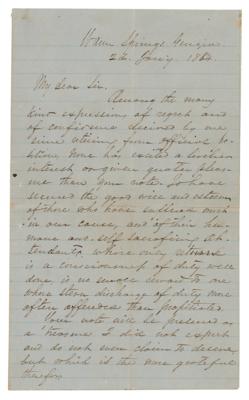 Warm Springs, Georgia
2d. Jany. 1864.
My dear Sir.
Among the many
kind expressions of regret and
of confidence received by me
since retiring from official po-
sition, none has excited a livelier
interest or given greater pleas-
ure than your note. To have
secured the good will and esteem
of those who have suffered much
in our cause, and of their hu-
mane and self sacrificing at-
tendants whose only
is a consciousness of duty well
done, is no small reward to one
whose stern discharge of duty more
often offended than
Your note will be preserved as
a treasure I did not expect
and do not even claim to deserve,
but which is the more grateful
therefor.